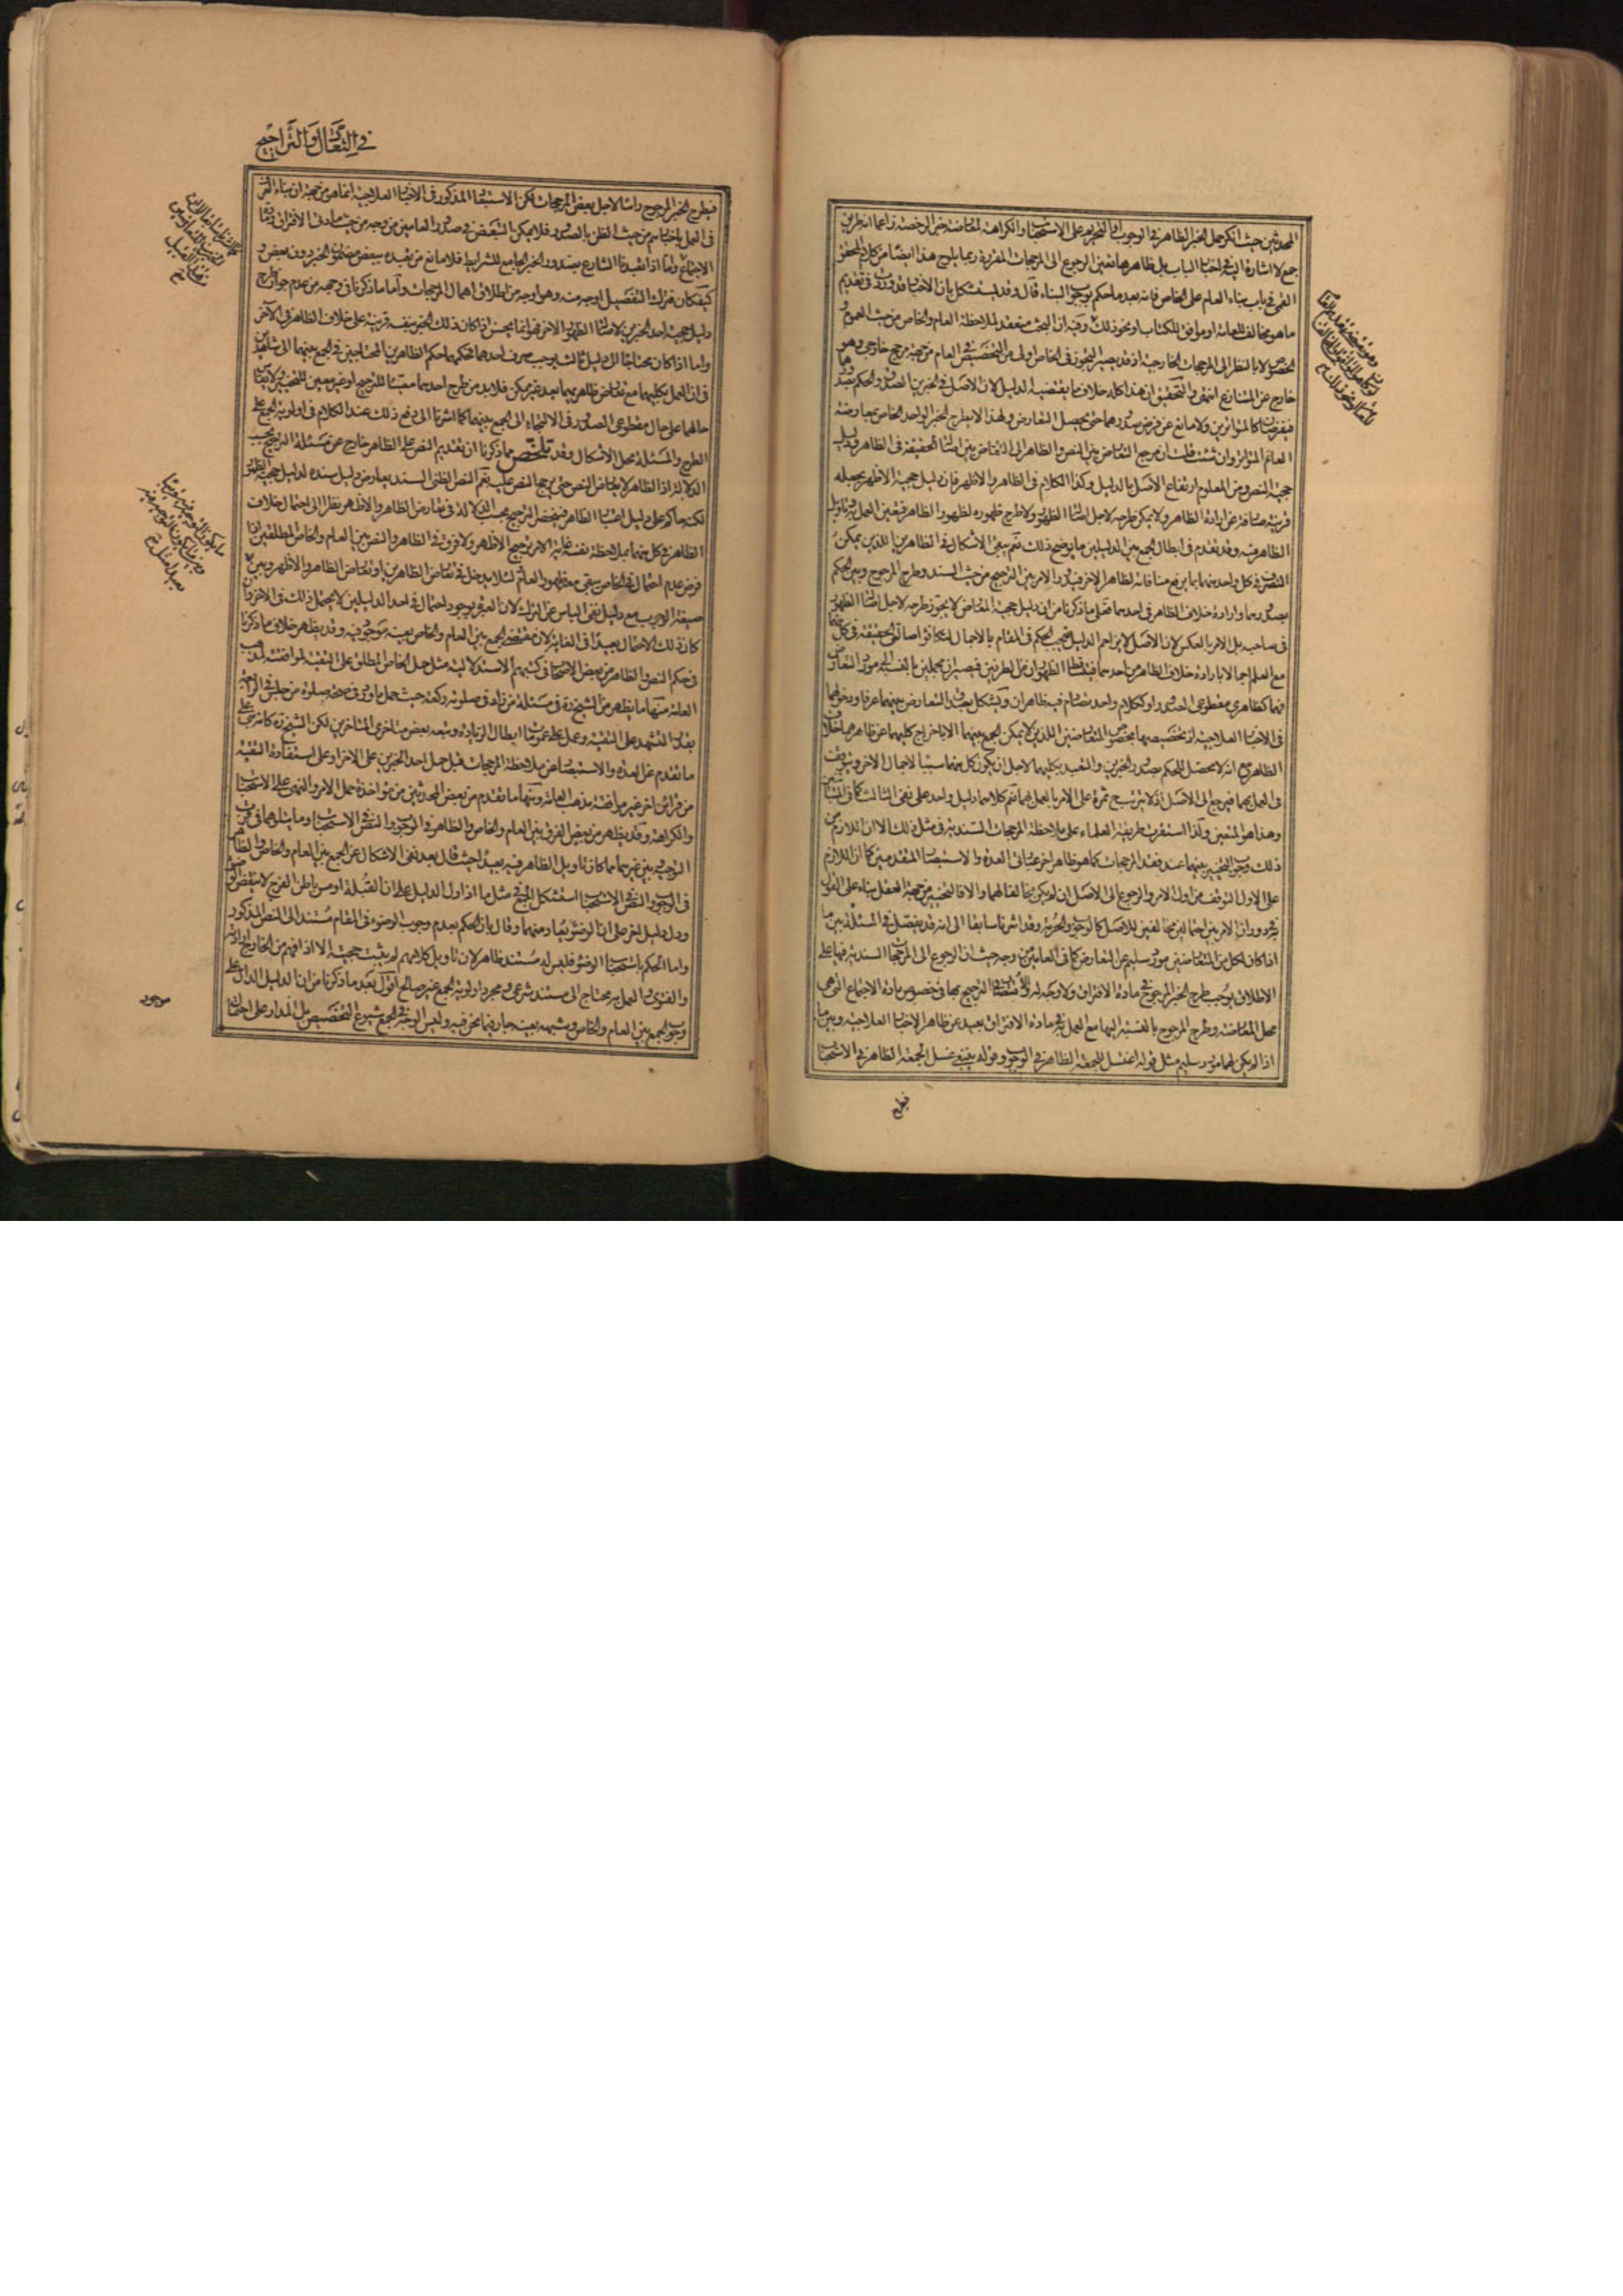 المحدثين حيث انكر حمل الخبر الظاهر فى الوجوب او التحريم على الاستحباب او الكراهة لمعارضة خبر الرخصة زاعما انه طريق
جمع لا اشارة اليه فى اخبار الباب بل ظاهرها تعين الرجوع الى المرجحات المقررة وربما يلوح هذا ايضا من كلام المحقق
القمى فى باب بناء العام على الخاص فانه بعد ما حكم بوجوب البناء قال وقد يستشكل بان الاخبار قد وردت فى تقديم
ما هو مخالف للعامة او موافق للكتاب او نحو ذلك وفيه ان البحث منعقد لملاحظة العام والخاص من حيث العموم و
الخصوص لا بالنظر الى المرجحات الخارجية اذ قد يصير التجوز فى الخاص اولى من التخصيص فى العام من جهة مرجح خارجى وهو
خارج عن المتنازع انتهى والتحقيق ان هذا كله خلاف ما يقتضيه الدليل لان الاصل فى الخبرين الصدق والحكم بصدورهما
فيفرضان كالمتواترين ولا مانع عن فرض صدورهما حتى يحصل التعارض ولهذا لا يطرح الخبر الواحد الخاص بمعارضة
العام المتواتر وان شئت قلت ان مرجع التعارض بين النص والظاهر الى التعارض بين اصالة الحقيقة فى الظاهر ودليل
حجية النص ومن المعلوم ارتفاع الاصل بالدليل وكذا الكلام فى الظاهر والاظهر فان دليل حجية الاظهر يجعله
قرينة صارفة عن ارادة الظاهر ولا يمكن طرحه لاجل اصالة الظهور ولا طرح ظهوره لظهور الظاهر فيتعين العمل به وتاويل
الظاهر فيه وقد تقدم فى ابطال الجمع بين الدليلين ما يوضح ذلك نعم يبقى الاشكال فى الظاهرين اللذين يمكن
التصرف فى كل واحد منهما بما يرفع منافاته لظاهر الاخر فيدور الامر بين الترجيح من حيث السند وطرح المرجوح وبين الحكم
بصدورهما وارادة خلاف الظاهر فى احدهما فعلى ما ذكرنا من ان دليل حجية المعارض لا يجوز طرحه لاجل اصالة الظهور
فى صاحبه بل الامر بالعكس لان الاصل لا يزاحم الدليل يجب الحكم فى المقام بالاجمال لتكافؤ اصالتى الحقيقة فى كل منهما
مع العلم اجمالا بارادة خلاف الظاهر من احدهما فيتساقط الظهوران من الطرفين فيصيران مجملين بالنسبة الى مورد التعارض
فهما كظاهرى مقطوعى الصدور او ككلام واحد تصادم فيه ظاهران ويشكل بصدق التعارض بينهما عرفا ودخولهما
فى الاخبار العلاجية اذ تخصيصها بخصوص المتعارضين اللذين لا يمكن الجمع بينهما الا باخراج كليهما عن ظاهرهما خلاف
الظاهر مع انه لا محصل للحكم بصدور الخبرين والتعبد بكليهما لاجل ان يكون كل منهما سببا لاجمال الاخر ويتوقف
فى العمل بهما فيرجع الى الاصل اذ لا يترتب ح ثمرة على الامر بالعمل بهما نعم كلاهما دليل واحد على نفى الثالث كما فى المتباينين
وهذا هو المتعين ولذا استقرت طريقة العلماء على ملاحظة المرجحات السندية فى مثل ذلك الا ان اللازم من
ذلك وجوب التخيير بينهما عند فقد المرجحات كما هو ظاهر اخر عبارتى العدة والاستبصار المتقدمتين كما ان اللازم
على الاول التوقف من اول الامر والرجوع الى الاصل ان لم يكن مخالفا لهما والا فالتخيير من جهة العقل بناء على القول
به فى دوران الامر بين احتمالين مخالفين للاصل كالوجوب والحرمة وقد اشرنا سابقا الى انه قد يفصل فى المسئلة بين ما
اذا كان لكل من المتعارضين مورد سليم عن التعارض كما فى العامين من وجه حيث ان الرجوع الى المرجحات السندية فيهما على
الاطلاق يوجب طرح الخبر المرجوح فى مادة الافتراق ولا وجه له والاقتصار فى الترجيح بها فى خصوص مادة الاجتماع التى هى
محل المعارضة وطرح المرجوح بالنسبة اليها مع العمل به فى مادة الافتراق بعيد عن ظاهر الاخبار العلاجية وبين ما
اذا لم يكن لهما مورد سليم مثل قوله اغتسل للجمعة الظاهر فى الوجوب وقوله ينبغى غسل الجمعة الظاهر فى الاستحباب
فيطرح
فى التعادل والتراجيح
فيطرح الخبر المرجوح راسا لاجل بعض المرجحات لكن الاستبعاد المذكور فى الاخبار العلاجية انما هو من جهة ان بناء العرف
فى العمل باخبارهم من حيث الظن بالصدور فلا يمكن التبعض فى صدور العامين من وجه من حيث مادتى الافتراق ومادة
الاجتماع واما اذا تعبدنا الشارع بصدور الخبر الجامع للشرائط فلا مانع من تعبده ببعض مضمون الخبر دون بعض و
كيف كان فترك التفصيل اوجه منه وهو اوجه من اطلاق اهمال المرجحات واما ما ذكرنا فى وجهه من عدم جواز طرح
دليل حجية احد الخبرين لاصالة الظهور الاخر فهو انما يحسن اذا كان ذلك الخبر بنفسه قرينة على خلاف الظاهر فى الآخر
واما اذا كان محتاجا الى دليل ثالث يوجب صرف احدهما فحكمهما حكم الظاهرين المحتاجين فى الجمع بينهما الى شاهدين
فى ان العمل بكليهما مع تعارض ظاهريهما يعد غير ممكن فلا بد من طرح احدهما معينا للترجيح او غير معين للتخيير ولا يقاس
حالهما على حال مقطوعى الصدور فى الالتجاء الى الجمع بينهما كما اشرنا الى دفع ذلك عند الكلام فى اولوية الجمع على
الطرح والمسئلة محل الاشكال وقد تلخص مما ذكرنا ان تقديم النص على الظاهر خارج عن مسئلة الترجيح بحسب
الدلالة اذ الظاهر لا يعارض النص حتى يرجح النص عليه نعم النص الظنى السند يعارض دليل سنده لدليل حجية الظهور
لكنه حاكم على دليل اعتبار الظاهر فينحصر الترجيح بحسب الدلالة فى تعارض الظاهر والاظهر نظرا الى احتمال خلاف
الظاهر فى كل منهما بملاحظة نفسه غاية الامر ترجيح الاظهر ولا فرق فى الظاهر والنص بين العام والخاص المطلقين اذا
فرض عدم احتمال فى الخاص يبقى معه ظهور العام لئلا يدخل فى تعارض الظاهرين او تعارض الظاهر والاظهر وبين ما
صيغة الوجوب مع دليل نفى الباس عن الترك لان العبرة بوجود احتمال فى احد الدليلين لا يحتمل ذلك فى الاخر وان
كان ذلك الاحتمال بعيدا فى الغاية لان مقتضى الجمع بين العام والخاص بعينه موجود فيه وقد يظهر خلاف ما ذكرنا
فى حكم النص والظاهر من بعض الاصحاب فى كتبهم الاستدلالية مثل حمل الخاص المطلق على التقية لموافقته لمذهب
العامة منها ما يظهر من الشيخ ره فى مسئلة من زاد فى صلوته ركعة حيث حمل ما ورد فى صحة صلوة من جلس فى الرابعة
بقدر التشهد على التقية وعمل على عمومات ابطال الزيادة وتبعه بعض متاخرى المتاخرين لكن الشيخ ره كانه بنى على
ما تقدم عن العدة والاستبصار من ملاحظة المرجحات قبل حمل احد الخبرين على الاخر او على استفادة التقية
من قرائن اخر غير موافقة مذهب العامة ومنها ما تقدم من بعض المحدثين من مؤاخذة حمل الامر والنهى على الاستحباب
والكراهة وقد يظهر من بعض الفرق بين العام والخاص والظاهر فى الوجوب والنص فى الاستحباب وما يتلوهما فى قرب
التوجيه وبين غيرهما مما كان تاويل الظاهر فيه بعيدا حيث قال بعد نفى الاشكال عن الجمع بين العام والخاص والظاهر
فى الوجوب والنص فى الاستحباب استشكل الجمع فى مثل ما اذا دل الدليل على ان القبلة او مس باطن الفرج لا ينقض الوضوء
ودل دليل اخر على ان الوضوء يعاد منهما وقال بان الحكم بعدم وجوب الوضوء فى المقام مستند الى النص المذكور
واما الحكم باستحباب الوضوء فليس له مستند ظاهر لان تاويل كلامهم لم يثبت حجيته الا اذا فهم من الخارج ارادته
والفتوى والعمل به محتاج الى مستند شرعى ومجرد اولوية الجمع غير صالح اقول بعد ما ذكرنا من ان الدليل الدال على
وجوب الجمع بين العام والخاص وشبهه بعينه جار فيما نحن فيه وليس الوجه فى الجمع شيوع التخصيص بل المدار على احتمال
موجود